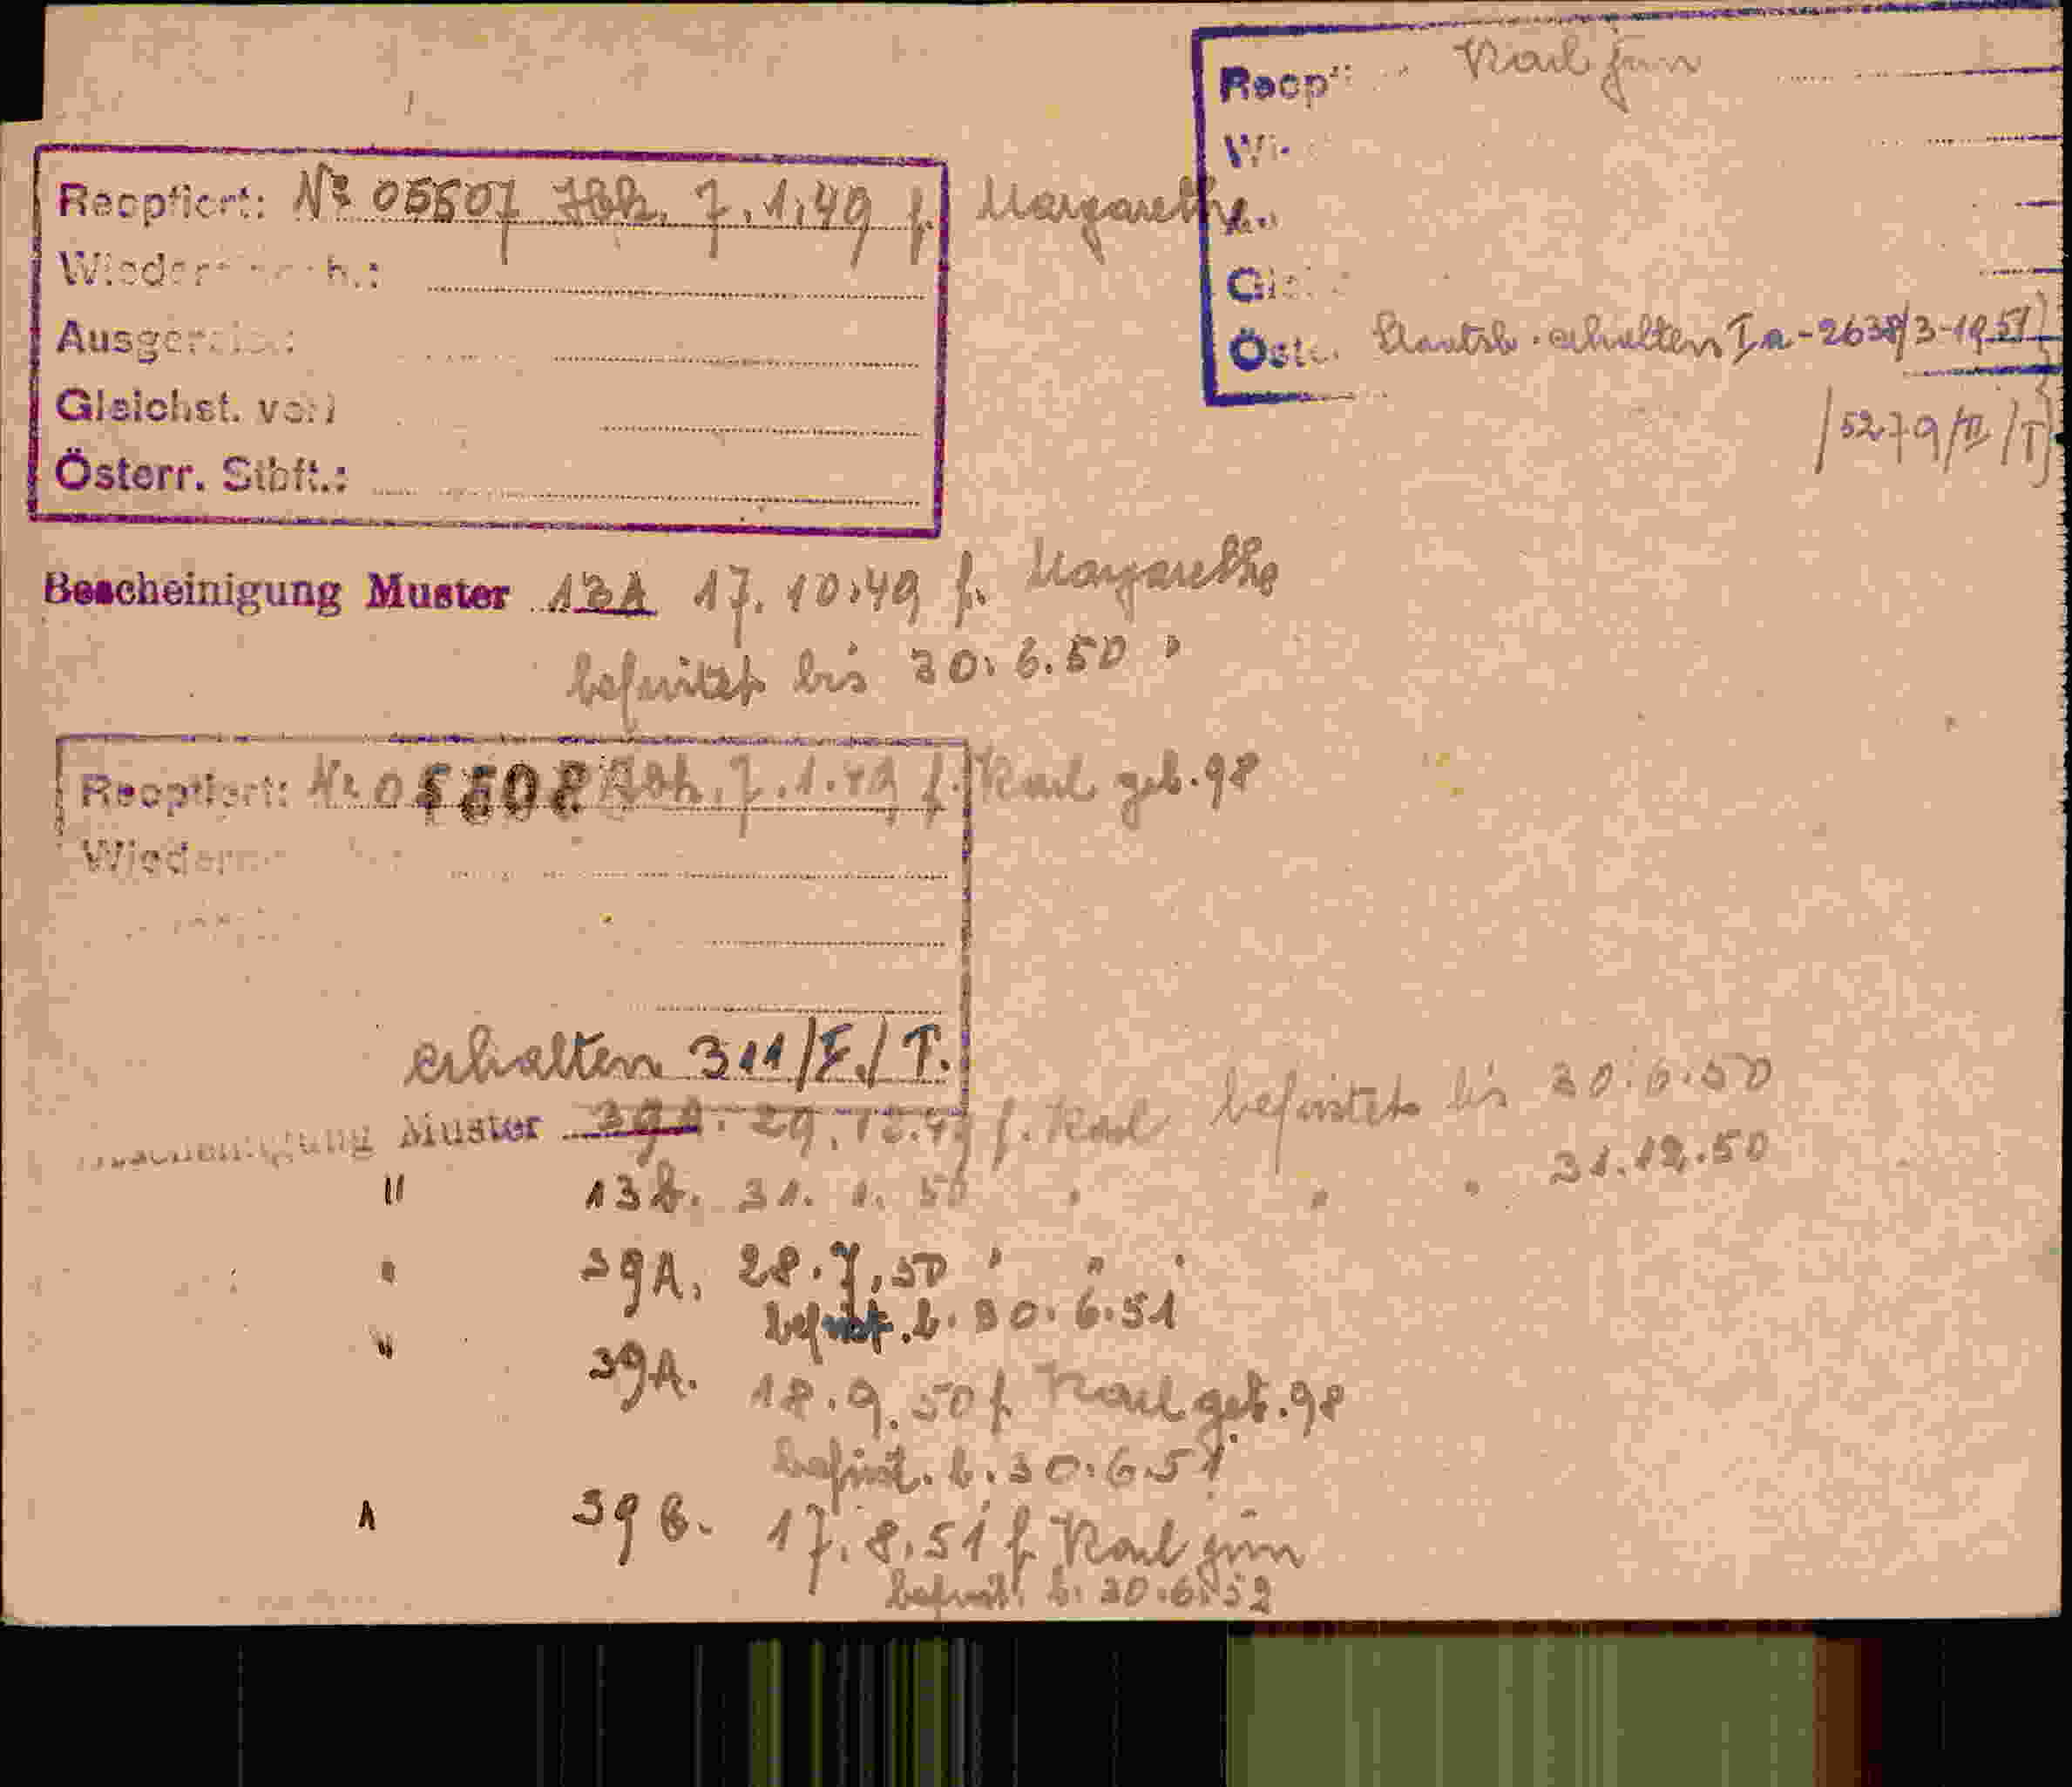 Reoptiert: Nr 05507 Ibk. 7.1.49 f. Margarethe
Ausgereist:
Gleichst. verl
Österr. Stbft.:
Karl jun
Staatsb. erhalten Ia-2638/3-1951
/5279/II/T
Bescheinigung Muster 13A 17.10.49 f. Margarethe
befristet bis 30.6.50 "
Reoptiert: Nr 05508 Ibk. 7.1.49 f. Karl geb. 98
erhalten 311/F./T.
Bescheinigung Muster 39A. 29.12.49 f. Karl befristet bis 30.6.50
" 13b. 31.1.50 " " " 31.12.50
" 39A. 28.7.50 " " "
befrist. b. 30.6.51
" 39A. 18.9.50 f Karl geb. 98
befrist. b. 30.6.51
39B. 17.8.51 f Karl jun
befrist. b. 30.6.52